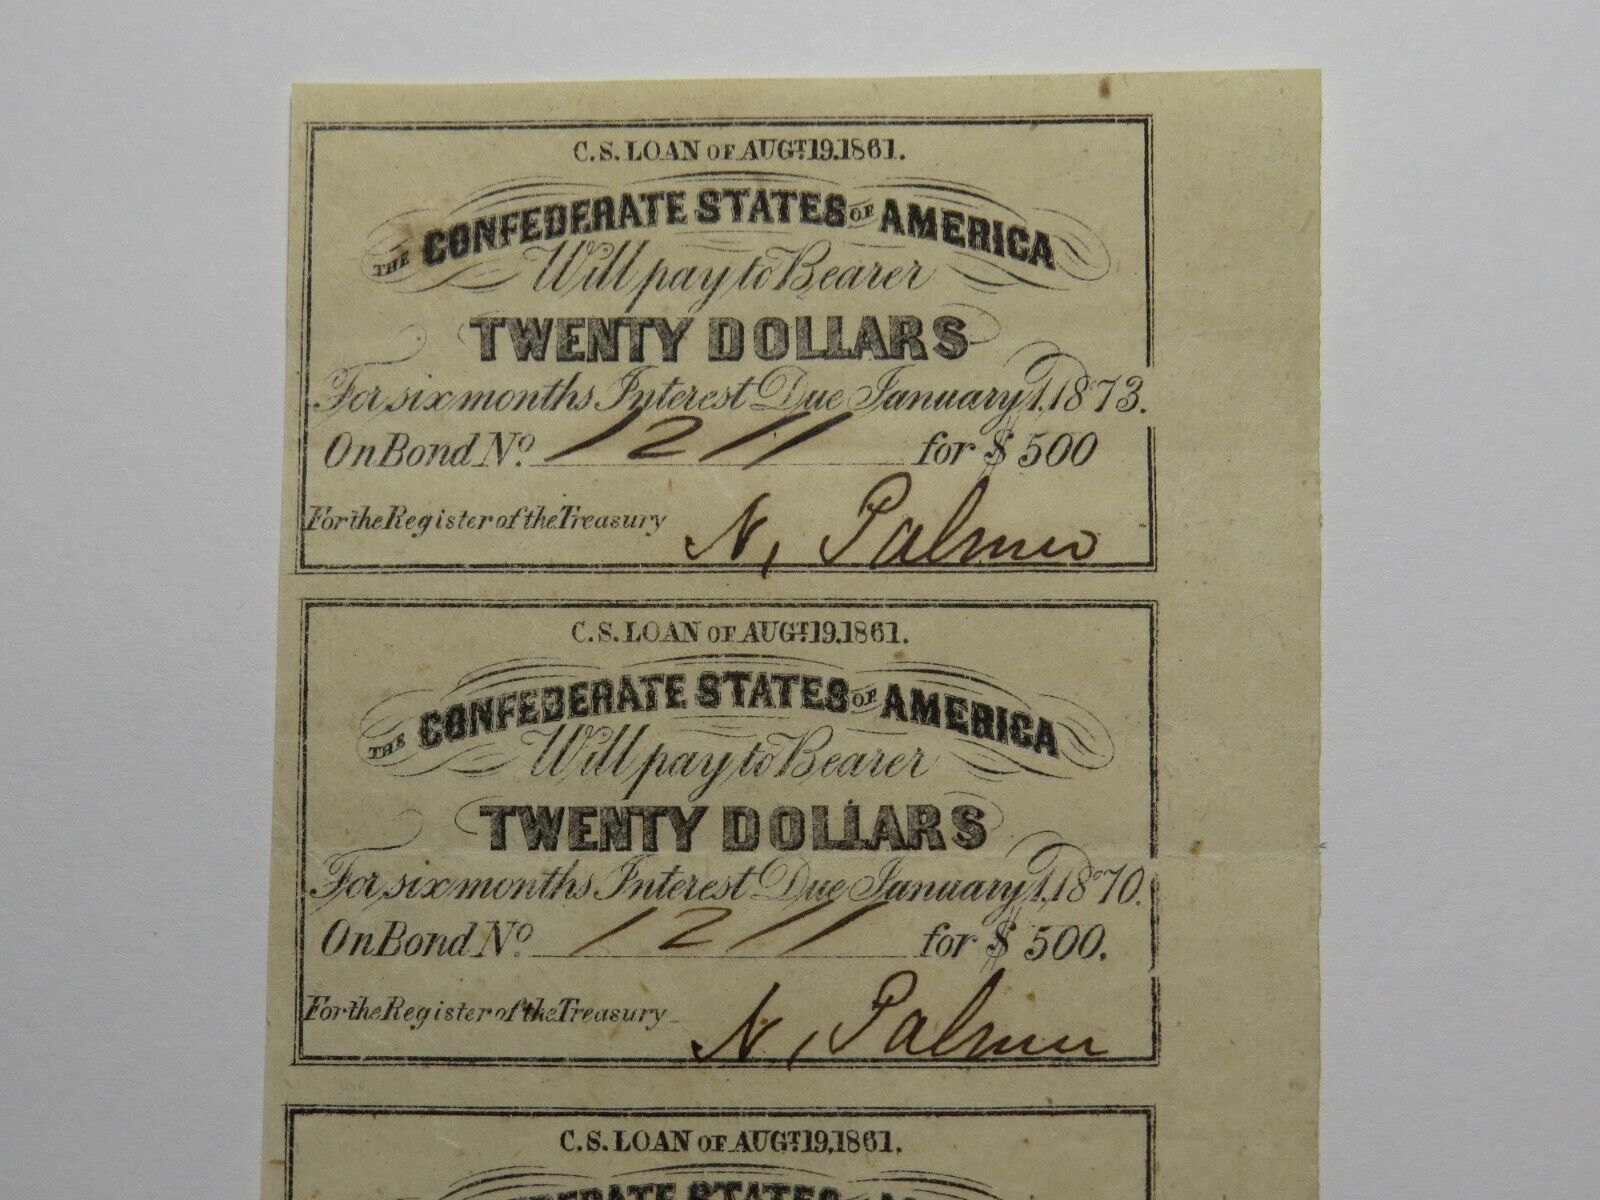 C.S. LOAN OF AUGT. 19.1861.
THE CONFEDERATE STATES OF AMERICA
Will pay to Bearer
TWENTY DOLLARS
For six months Interest Due January 1, 1873.
On Bond No. 1211 for $ 500
For the Register of the Treasury N, Palmer
C.S. LOAN OF AUGT. 19.1861.
THE CONFEDERATE STATES OF AMERICA
Will pay to Bearer
TWENTY DOLLARS
For six months Interest Due January 1, 1870.
On Bond No. 1211 for $ 500.
For the Register of the Treasury N, Palmer
C.S. LOAN OF AUGT. 19.1861.